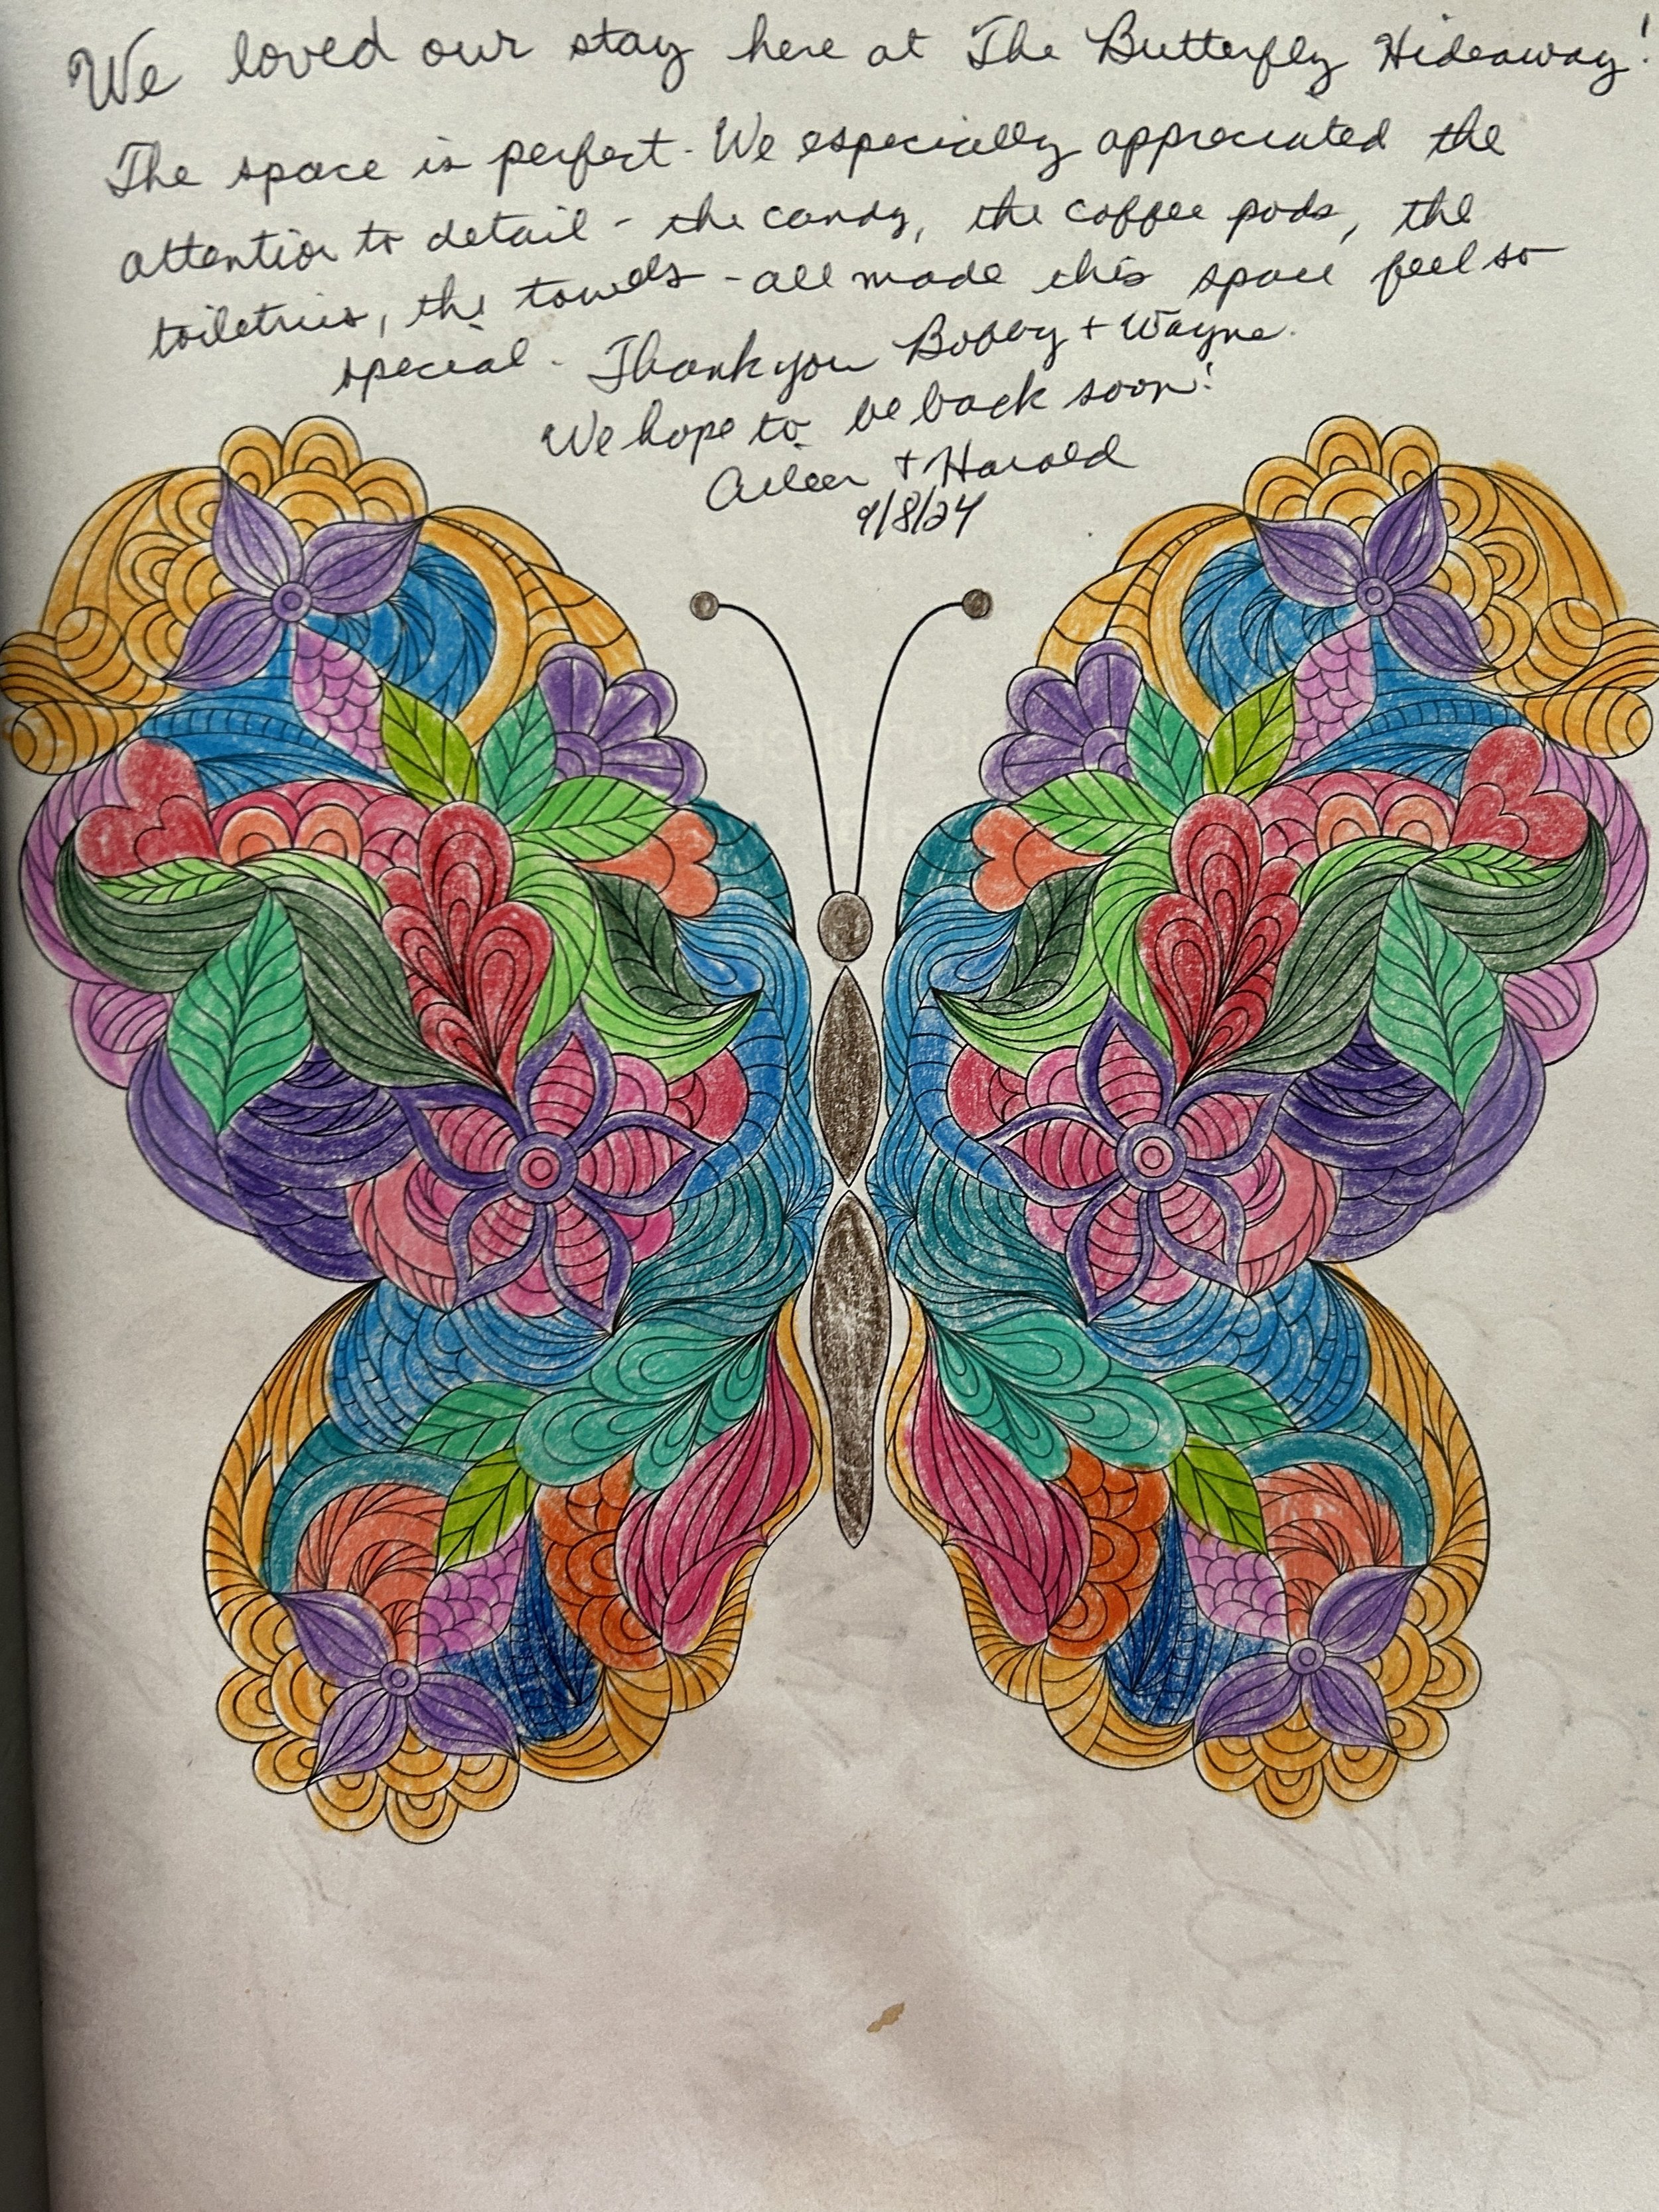 We loved our stay here at The Butterfly Hideaway!
The space is perfect. We especially appreciated the
attention to detail - the candy, the coffee pods, the
toiletries, the towels - all made this space feel so
special. Thank you Bobby + Wayne.
We hope to be back soon!
Aileen + Harold
9/8/24